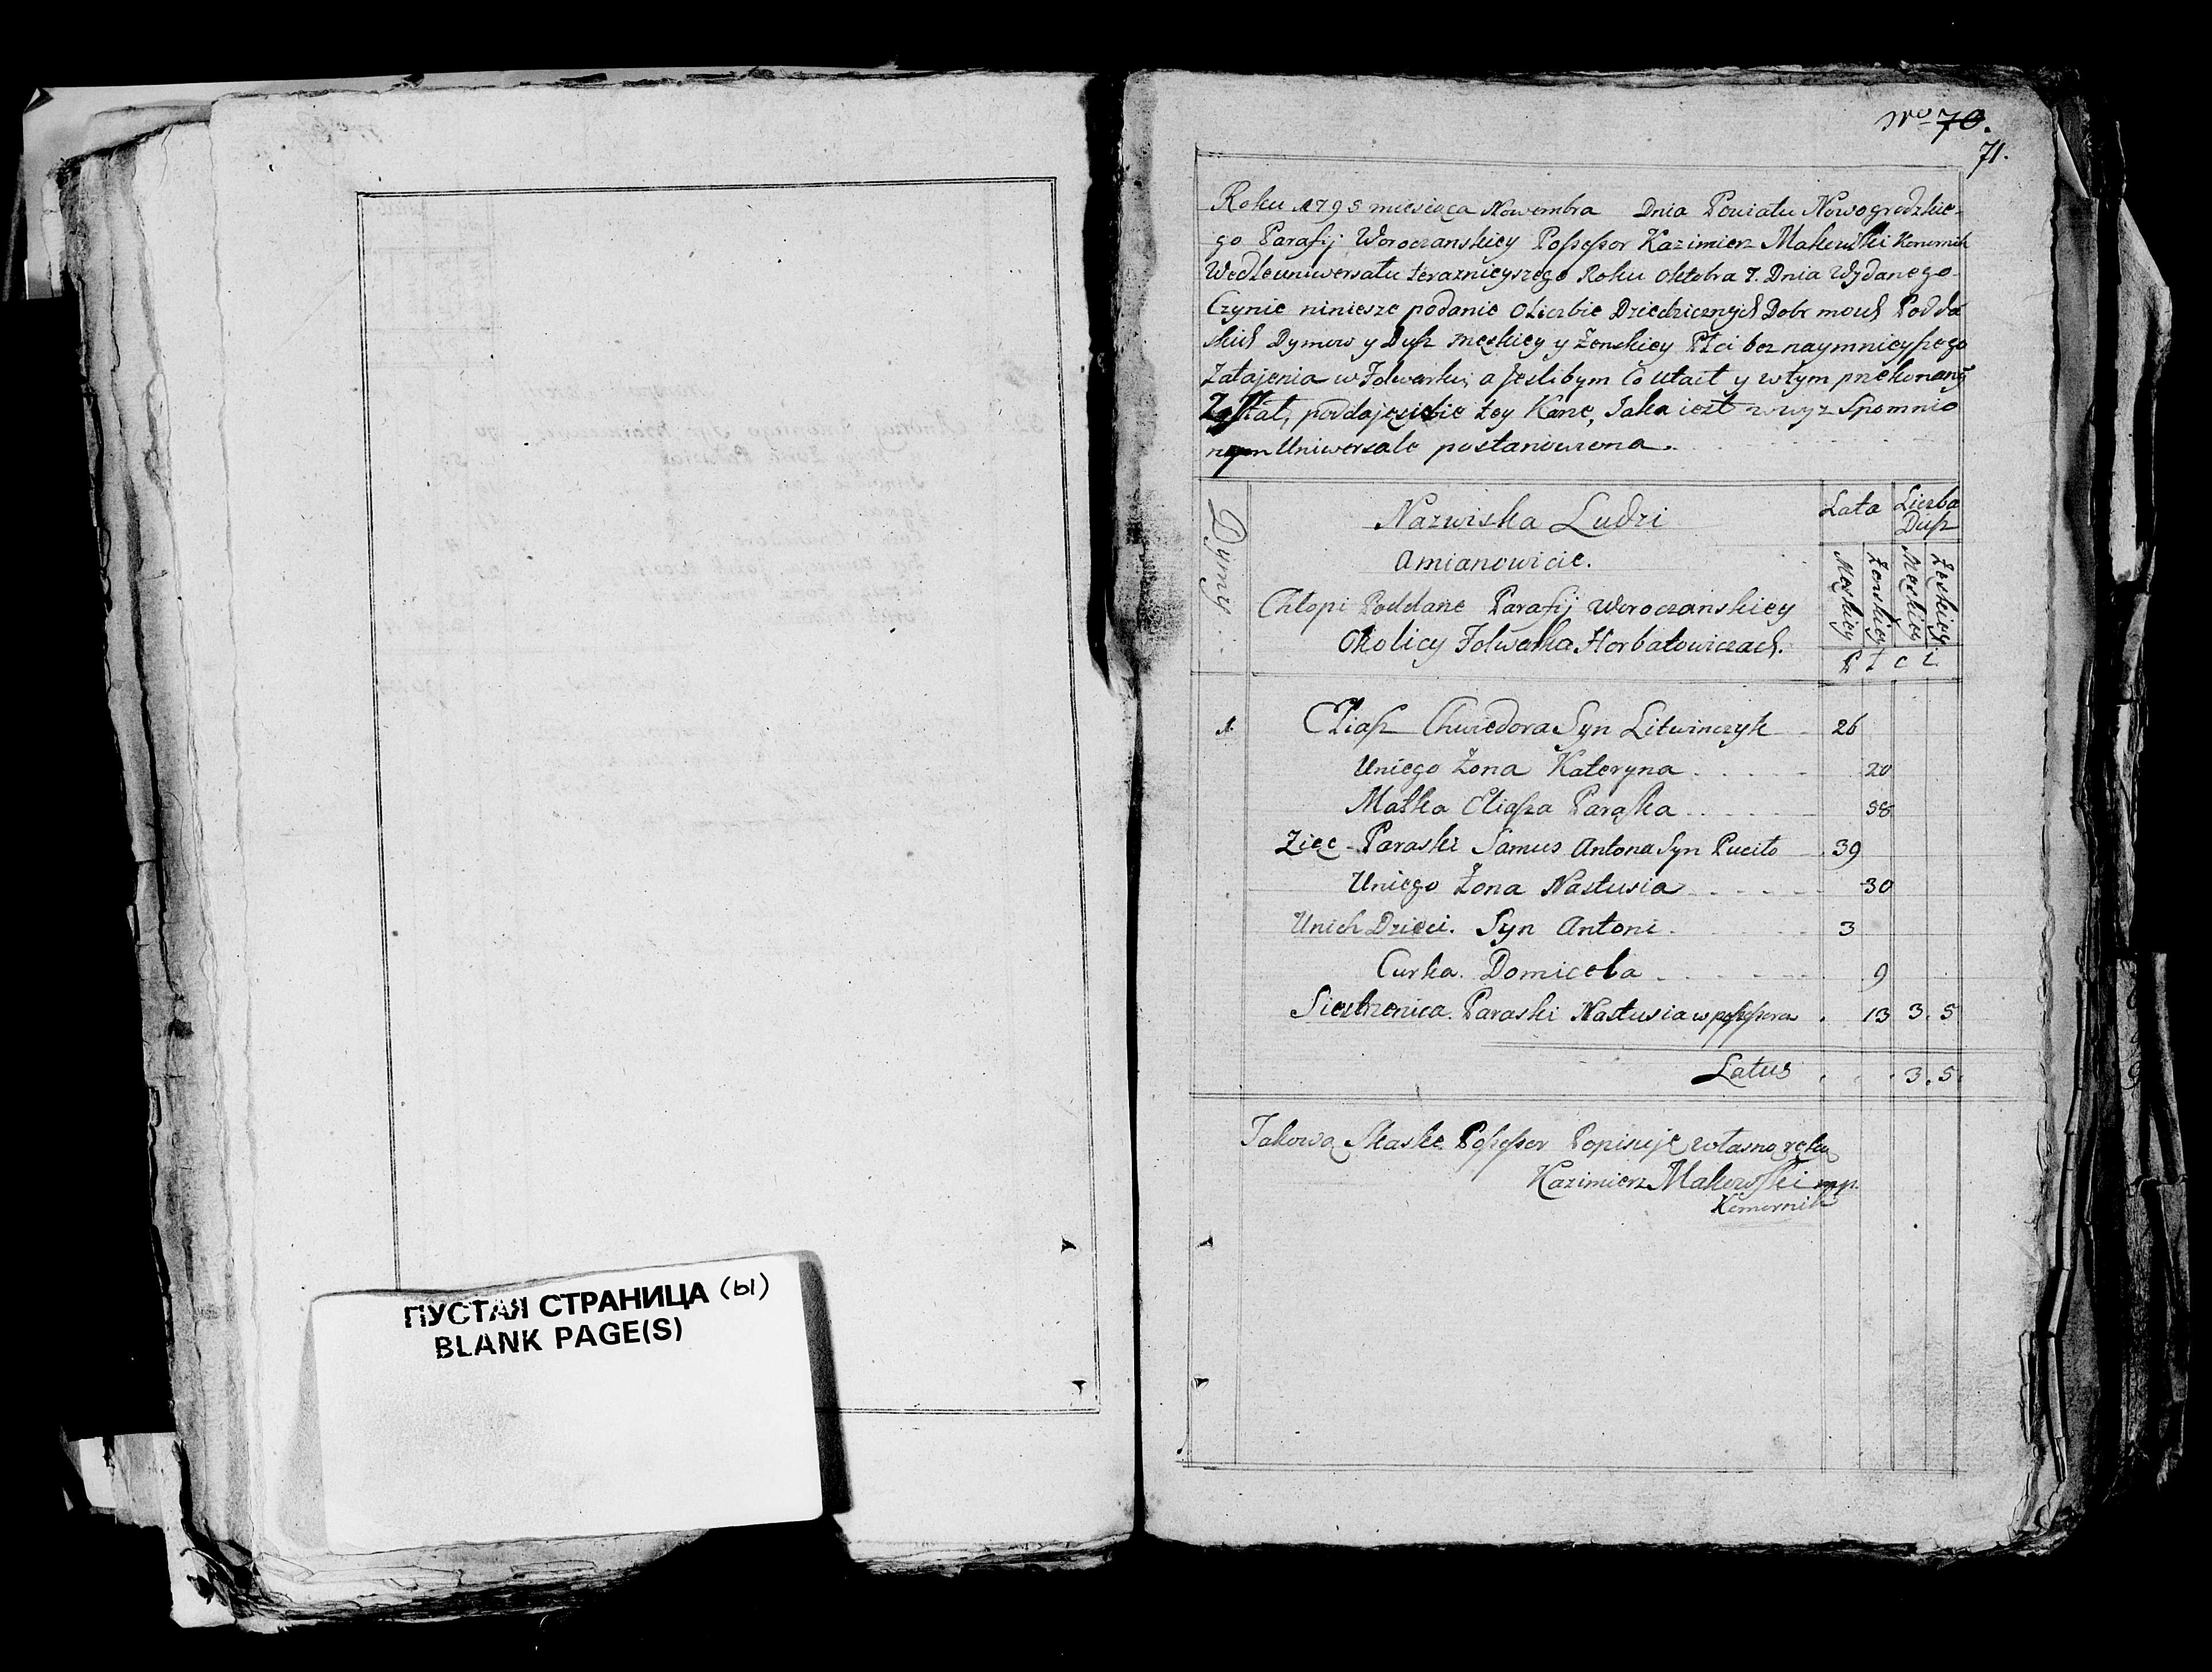 ПУСТАЯ СТРАНИЦА (ы)
BLANK PAGE(S)
No 70.
71.
Roku 1795 miesiąca Nowembra Dnia Powiatu Nowogrodzkie-
go Parafij Woroczanskiey Possessor Kazimierz Makowski Komornik
Wedle uniwersału teraznieyszego Roku Oktobra 7. Dnia Wydanego
Czynie niniesze podanie o Liczbie Dziedzicznych Dobr moich Podda
skich Dymow y Dusz męskiey y Zenskiey Płci bez naymnieyszego
Zatajenia w Folwarku, a Jeslibym Co utaił y w tym przekonany
Został, poddaje siebie tey Karze, Jaka iest w wyz Spomnio
nym Uniwersale postanowiona.
Dymy
Nazwiska Ludzi
Amianowicie.
Chłopi Poddane Parafij Woroczanskiey
Okolicy Folwarka Horbatowiczach.
Lata
Liczba Dusz
Męskiey
Zenskiey
Męskiey
Żeskiey
P ł c i
1. Eliasz Chwiedora Syn Litwinczyk 26
Uniego Żona Kateryna 20
Matka Eliasza Paraska 58
Zięc Paraski Samus Antona Syn Puciło 39
Uniego Żona Nastusia 30
Unich Dzieci. Syn Antoni 3
Curka. Domicela 9
Siestrzenica. Paraski Nastusia w possessora 13 3. 5
Latus 3. 5.
Takową Skaske Possessor Popisuje własną ręką
Kazimierz Makowski mp.
Komornik